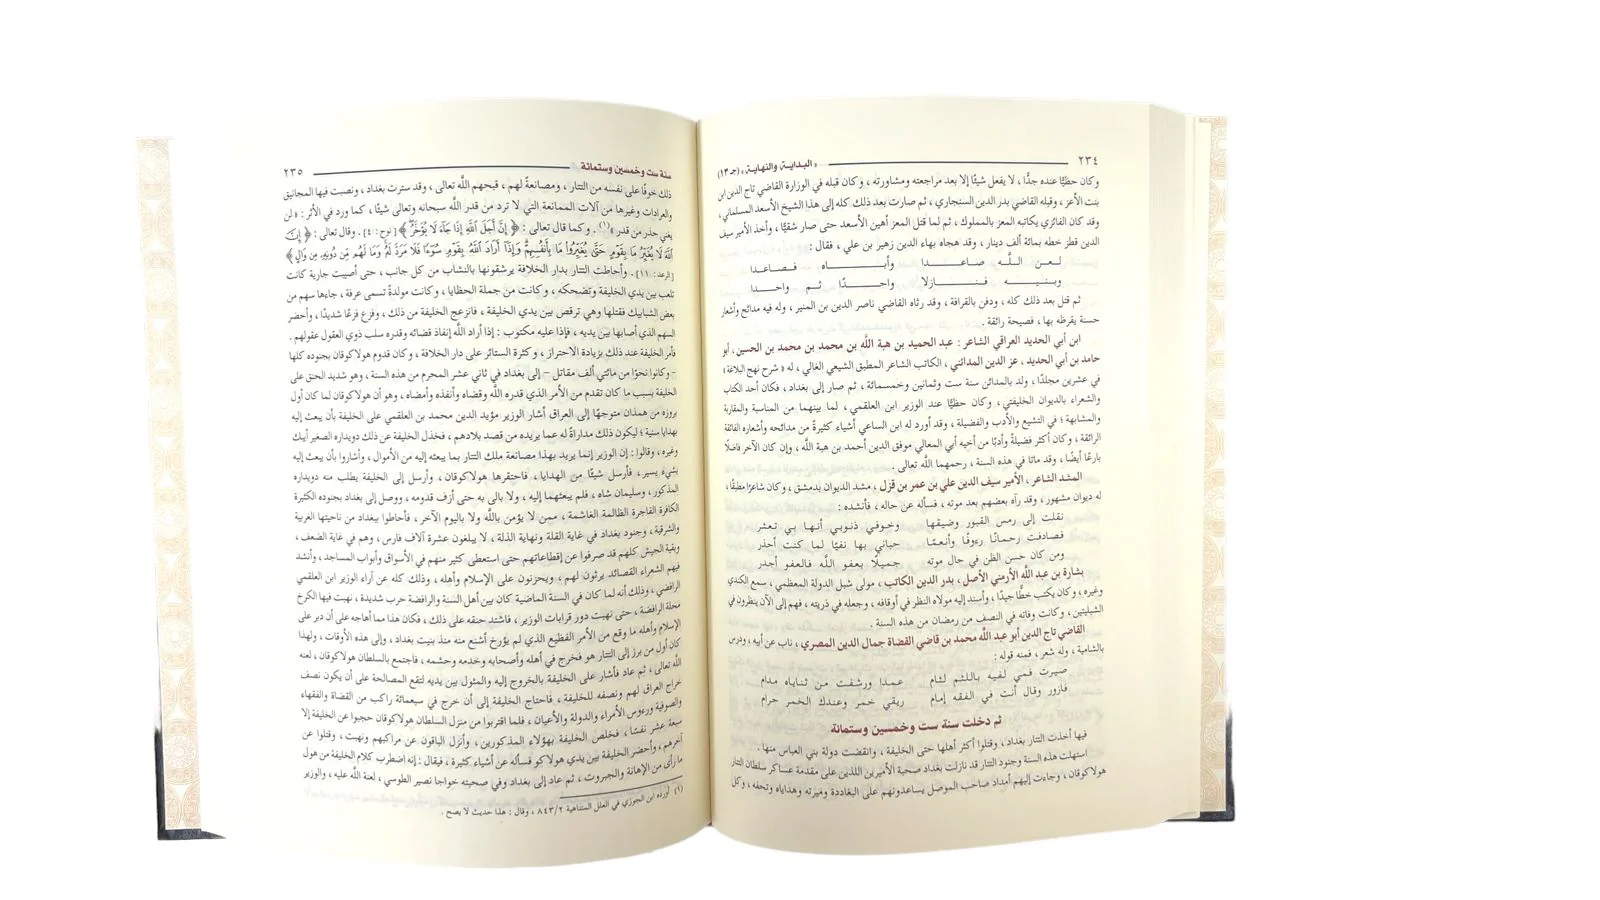 ٢٣٤ «البداية والنهاية» (جـ ١٣)
وكان حظيًّا عنده جدًّا ، لا يفعل شيئًا إلا بعد مراجعته ومشاورته ، وكان قبله في الوزارة القاضي تاج الدين ابن
بنت الأعز ، وقبله القاضي بدر الدين السنجاري ، ثم صارت بعد ذلك كله إلى هذا الشيخ الأسعد المسلماني ،
وقد كان الفائزي يكاتبه المعز بالمملوك ، ثم لما قتل المعز أهين الأسعد حتى صار شقيًّا ، وأخذ الأمير سيف
الدين قطز خطه بمائة ألف دينار ، وقد هجاه بهاء الدين زهير بن علي ، فقال :
لعن اللَّه صاعدا وأباه فصاعدا
وبنيه فنازلا واحدًا ثم واحدا
ثم قتل بعد ذلك كله ، ودفن بالقرافة ، وقد رثاه القاضي ناصر الدين بن المنير ، وله فيه مدائح وأشعار
حسنة يقرظه بها ، فصيحة رائقة .
ابن أبي الحديد العراقي الشاعر : عبد الحميد بن هبة اللَّه بن محمد بن محمد بن الحسين ، أبو
حامد بن أبي الحديد ، عز الدين المدائني ، الكاتب الشاعر المطبق الشيعي الغالي ، له « شرح نهج البلاغة »
في عشرين مجلدًا ، ولد بالمدائن سنة ست وثمانين وخمسمائة ، ثم صار إلى بغداد ، فكان أحد الكتاب
والشعراء بالديوان الخليفتي ، وكان حظيًّا عند الوزير ابن العلقمي ، لما بينهما من المناسبة والمقاربة
والمشابهة ؛ في التشيع والأدب والفضيلة ، وقد أورد له ابن الساعي أشياء كثيرةً من مدائحه وأشعاره الفائقة
الرائقة ، وكان أكثر فضيلةً وأدبًا من أخيه أبي المعالي موفق الدين أحمد بن هبة اللَّه ، وإن كان الآخر فاضلًا
بارعًا أيضًا ، وقد ماتا في هذه السنة ، رحمهما اللَّه تعالى .
المشد الشاعر ، الأمير سيف الدين علي بن عمر بن قزل ، مشد الديوان بدمشق ، وكان شاعرًا مطبقًا ،
له ديوان مشهور ، وقد رآه بعضهم بعد موته ، فسأله عن حاله ، فأنشده :
نقلت إلى رمس القبور وضيقها وخوفي ذنوبي أنها بي تعثر
فصادفت رحمانًا رءوفًا وأنعمًا حباني بها نفيًا لما كنت أحذر
ومن كان حسن الظن في حال موته جميلًا بعفو اللَّه فالعفو أجدر
بشارة بن عبد اللَّه الأرمني الأصل ، بدر الدين الكاتب ، مولى شبل الدولة المعظمي ، سمع الكندي
وغيره ، وكان يكتب خطًّا جيدًا ، وأسند إليه مولاه النظر في أوقافه ، وجعله في ذريته ، فهم إلى الآن ينظرون في
الشبليتين ، وكانت وفاته في النصف من رمضان من هذه السنة .
القاضي تاج الدين أبو عبد اللَّه محمد بن قاضي القضاة جمال الدين المصري ، ناب عن أبيه ، ودرس
بالشامية ، وله شعر ، فمنه قوله :
صيرت فمي لفيه باللثم لثام عمدا ورشفت من ثناياه مدام
فازور وقال أنت في الفقه إمام ريقي خمر وعندك الخمر حرام
ثم دخلت سنة ست وخمسين وستمائة
فيها أخذت التتار بغداد ، وقتلوا أكثر أهلها حتى الخليفة ، وانقضت دولة بني العباس منها .
استهلت هذه السنة وجنود التتار قد نازلت بغداد صحبة الأميرين اللذين على مقدمة عساكر سلطان التتار
هولاكوقان ، وجاءت إليهم أمداد صاحب الموصل يساعدونهم على البغاددة وميرته وهداياه وتحفه ، وكل
سنة ست وخمسين وستمائة ٢٣٥
ذلك خوفًا على نفسه من التتار ، ومصانعةً لهم ، قبحهم اللَّه تعالى ، وقد سترت بغداد ، ونصبت فيها المجانيق
والعرادات وغيرها من آلات الممانعة التي لا ترد من قدر اللَّه سبحانه وتعالى شيئًا ، كما ورد في الأثر : « لن
يغني حذر من قدر »(١) . وكما قال تعالى : ﴿ إِنَّ أَجَلَ اللَّهِ إِذَا جَاءَ لَا يُؤَخَّرُ ﴾ [ نوح : ٤ ] . وقال تعالى : ﴿ إِنَّ
اللَّهَ لَا يُغَيِّرُ مَا بِقَوْمٍ حَتَّى يُغَيِّرُوا مَا بِأَنْفُسِهِمْ وَإِذَا أَرَادَ اللَّهُ بِقَوْمٍ سُوءًا فَلَا مَرَدَّ لَهُ وَمَا لَهُمْ مِنْ دُونِهِ مِنْ وَالٍ ﴾
[ الرعد : ١١ ] . وأحاطت التتار بدار الخلافة يرشقونها بالنشاب من كل جانب ، حتى أصيبت جارية كانت
تلعب بين يدي الخليفة وتضحكه ، وكانت من جملة الحظايا ، وكانت مولدةً تسمى عرفة ، جاءها سهم من
بعض الشبابيك فقتلها وهي ترقص بين يدي الخليفة ، فانزعج الخليفة من ذلك ، وفزع فزعًا شديدًا ، وأحضر
السهم الذي أصابها بين يديه ، فإذا عليه مكتوب : إذا أراد اللَّه إنفاذ قضائه وقدره سلب ذوي العقول عقولهم .
فأمر الخليفة عند ذلك بزيادة الاحتراز ، وكثرة الستائر على دار الخلافة ، وكان قدوم هولاكوقان بجنوده كلها
– وكانوا نحوًا من مائتي ألف مقاتل – إلى بغداد في ثاني عشر المحرم من هذه السنة ، وهو شديد الحنق على
الخليفة بسبب ما كان تقدم من الأمر الذي قدره اللَّه وقضاه وأنفذه وأمضاه ، وهو أن هولاكوقان لما كان أول
بروزه من همذان متوجهًا إلى العراق أشار الوزير مؤيد الدين محمد بن العلقمي على الخليفة بأن يبعث إليه
بهدايا سنية ؛ ليكون ذلك مداراةً له عما يريده من قصد بلادهم ، فخذل الخليفة عن ذلك دويداره الصغير أيبك
وغيره ، وقالوا : إن الوزير إنما يريد بهذا مصانعة ملك التتار بما يبعثه إليه من الأموال ، وأشاروا بأن يبعث إليه
بشيء يسير ، فأرسل شيئًا من الهدايا ، فاحتقرها هولاكوقان ، وأرسل إلى الخليفة يطلب منه دويداره
المذكور ، وسليمان شاه ، فلم يبعثهما إليه ، ولا بالى به حتى أزف قدومه ، ووصل إلى بغداد بجنوده الكثيرة
الكافرة الفاجرة الظالمة الغاشمة ، ممن لا يؤمن باللَّه ولا باليوم الآخر ، فأحاطوا ببغداد من ناحيتها الغربية
والشرقية ، وجنود بغداد في غاية القلة ونهاية الذلة ، لا يبلغون عشرة آلاف فارس ، وهم في غاية الضعف ،
وبقية الجيش كلهم قد صرفوا عن إقطاعاتهم حتى استعطى كثير منهم في الأسواق وأبواب المساجد ، وأنشد
فيهم الشعراء القصائد يرثون لهم ، ويحزنون على الإسلام وأهله ، وذلك كله عن آراء الوزير ابن العلقمي
الرافضي ، وذلك أنه لما كان في السنة الماضية كان بين أهل السنة والرافضة حرب شديدة ، نهبت فيها الكرخ
محلة الرافضة ، حتى نهبت دور قرابات الوزير ، فاشتد حنقه على ذلك ، فكان هذا مما أهاجه على أن دبر على
الإسلام وأهله ما وقع من الأمر الفظيع الذي لم يؤرخ أشنع منه منذ بنيت بغداد ، وإلى هذه الأوقات ، ولهذا
كان أول من برز إلى التتار هو فخرج في أهله وأصحابه وخدمه وحشمه ، فاجتمع بالسلطان هولاكوقان ، لعنه
اللَّه تعالى ، ثم عاد فأشار على الخليفة بالخروج إليه والمثول بين يديه لتقع المصالحة على أن يكون نصف
خراج العراق لهم ونصفه للخليفة ، فاحتاج الخليفة إلى أن خرج في سبعمائة راكب من القضاة والفقهاء
والصوفية ورءوس الأمراء والدولة والأعيان ، فلما اقتربوا من منزل السلطان هولاكوقان حجبوا عن الخليفة إلا
سبعة عشر نفسًا ، فخلص الخليفة بهؤلاء المذكورين ، وأنزل الباقون عن مراكبهم ونهبت ، وقتلوا عن
آخرهم ، وأحضر الخليفة بين يدي هولاكو فسأله عن أشياء كثيرة ، فيقال : إنه اضطرب كلام الخليفة من هول
ما رأى من الإهانة والجبروت ، ثم عاد إلى بغداد وفي صحبته خواجا نصير الطوسي ، لعنة اللَّه عليه ، والوزير
(١) أورده ابن الجوزي في العلل المتناهية ٢/ ٨٤٣ ، وقال : هذا حديث لا يصح .